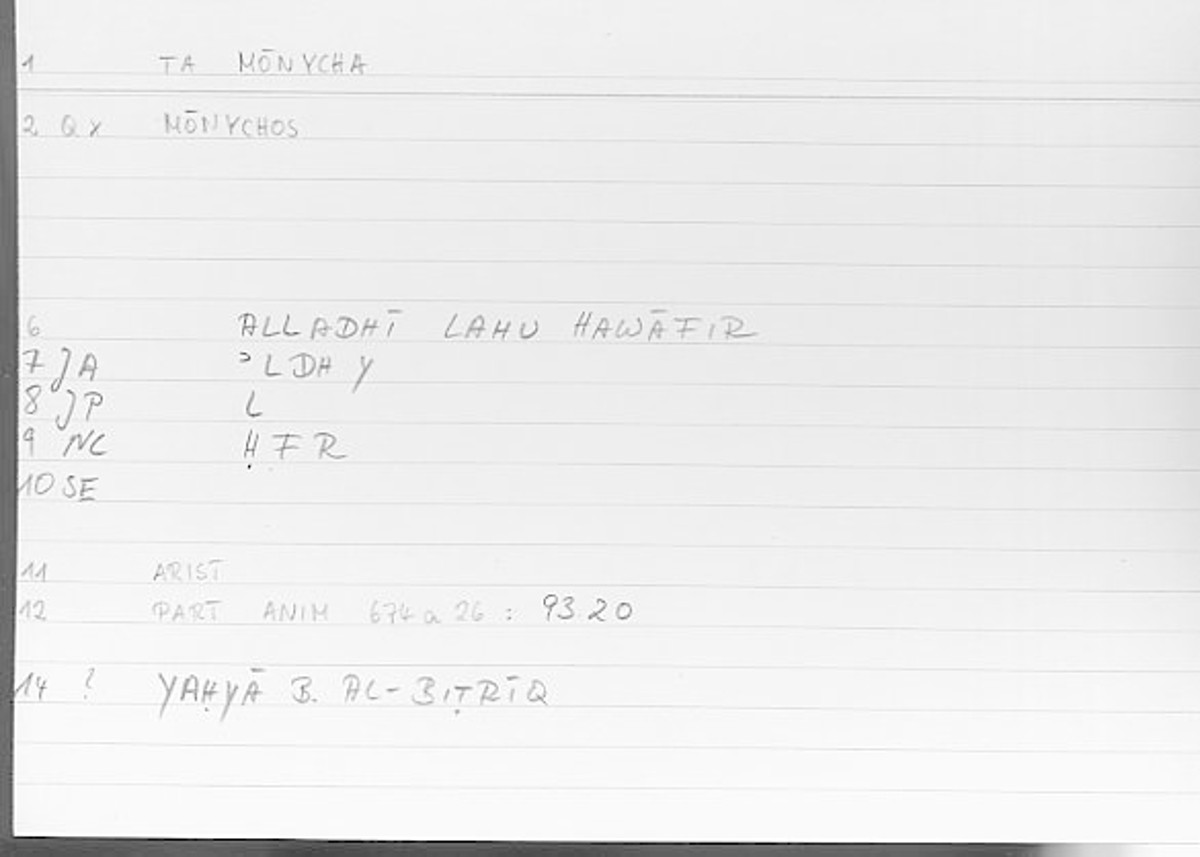 1 TA MŌNYCHA
2 QX MŌNYCHOS
6 ALLADHĪ LAHU HAWĀFIR
7 JA ʾLDHY
8 JP L
9 NC ḤFR
10 SE
11 ARIST
12 PART ANIM 674a26 : 93.20
14 ? YAḤYĀ B. AL-BIṬRĪQ